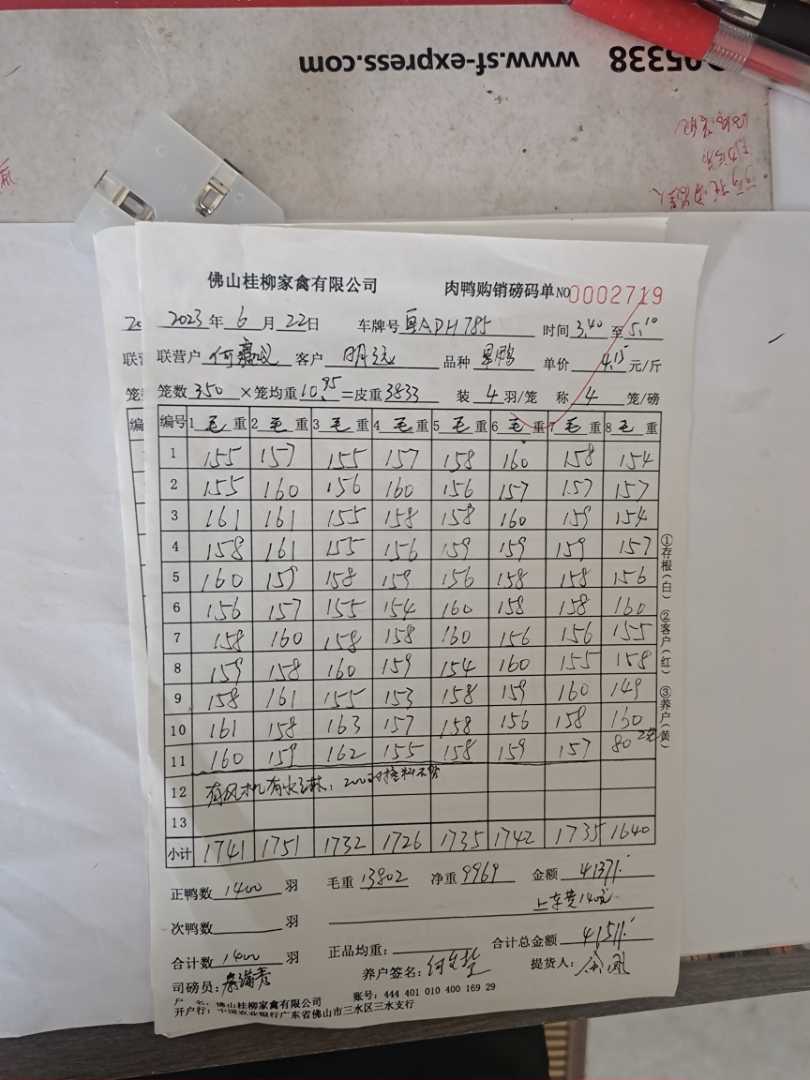 05338 www.sf-express.com
佛山桂柳家禽有限公司 肉鸭购销磅码单 NO 0002719
2023年6月22日 车牌号 粤ADH785 时间 3.40 至 5.10
联营户 何 客户 明 品种 鸭 单价 4.15 元/斤
笼数 350 ×笼均重 10.95 =皮重 3833 装 4 羽/笼 称 4 笼/磅
编号 1 毛 重 2 毛 重 3 毛 重 4 毛 重 5 毛 重 6 毛 重 7 毛 重 8 毛 重
1 155 157 155 157 158 160 158 154
2 155 160 156 160 156 157 157 157
3 161 161 155 158 158 160 159 154
4 158 161 155 156 159 159 159 157
5 160 159 158 159 156 158 158 156
6 156 157 155 154 160 158 158 160
7 158 160 158 158 160 156 156 155
8 159 158 160 159 154 160 155 158
9 158 161 155 153 158 159 160 149
10 161 158 163 157 158 156 158 160
11 160 159 162 155 158 159 157 80
12 有风机有水
13
小计 1741 1751 1732 1726 1735 1742 1735 1640
①存根(白) ②客户(红) ③养户(黄)
正鸭数 1400 羽 毛重 13802 净重 9969 金额 41371.
上车费140元
次鸭数 羽
合计数 1400 羽 正品均重: 合计总金额 41511.
司磅员: 养户签名: 何 提货人:
户 名: 佛山桂柳家禽有限公司 账号: 444 401 010 400 169 29
开户行: 中国农业银行广东省佛山市三水区三水支行